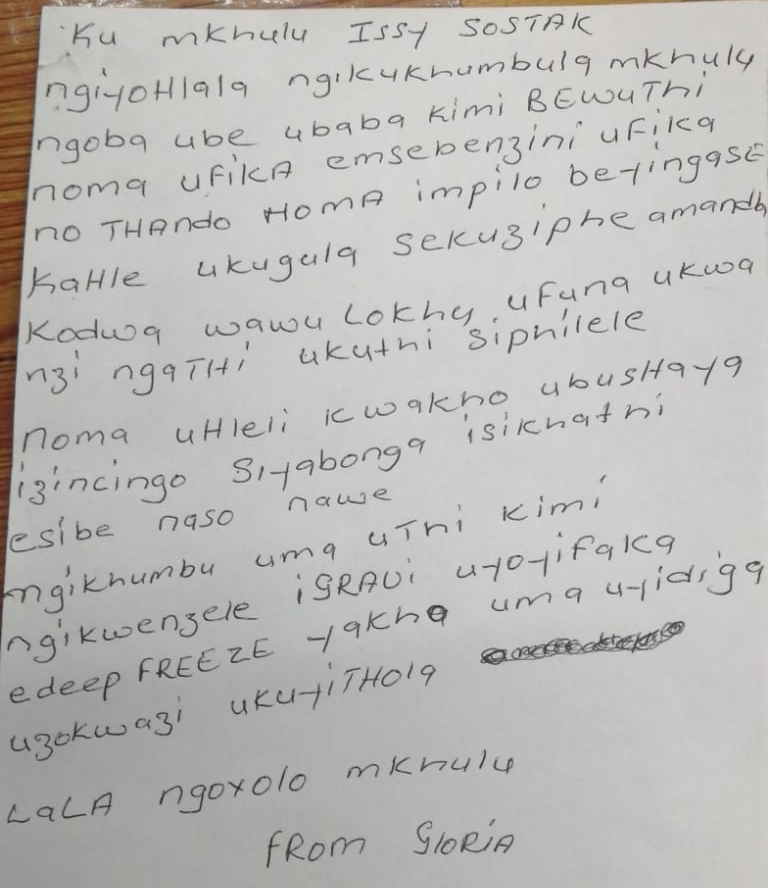 Ku mkhulu ISSY SOSTAK
ngiyoHlala ngikukhumbula mkhulu
ngoba ube ubaba kimi BEWUThi
noma uFiKA emsebenzini uFika
no THAndo HomA impilo beyingasE
KaHle ukugula sekuziphe amandh
Kodwa wawu Lokhu ufuna ukwa
nzi ngaTHi ukuthi Siphilele
noma uHleli kwakho ubusHaya
izincingo Siyabonga isikhathi
esibe naso nawe
ngikhumbu uma uThi kimi
ngikwenzele iGRAVi uyoyifaka
edeep FREEZE yakho uma uyidiga
uzokwazi ukuyiTHola
LaLA ngoxolo mkhulu
fRom GloRiA